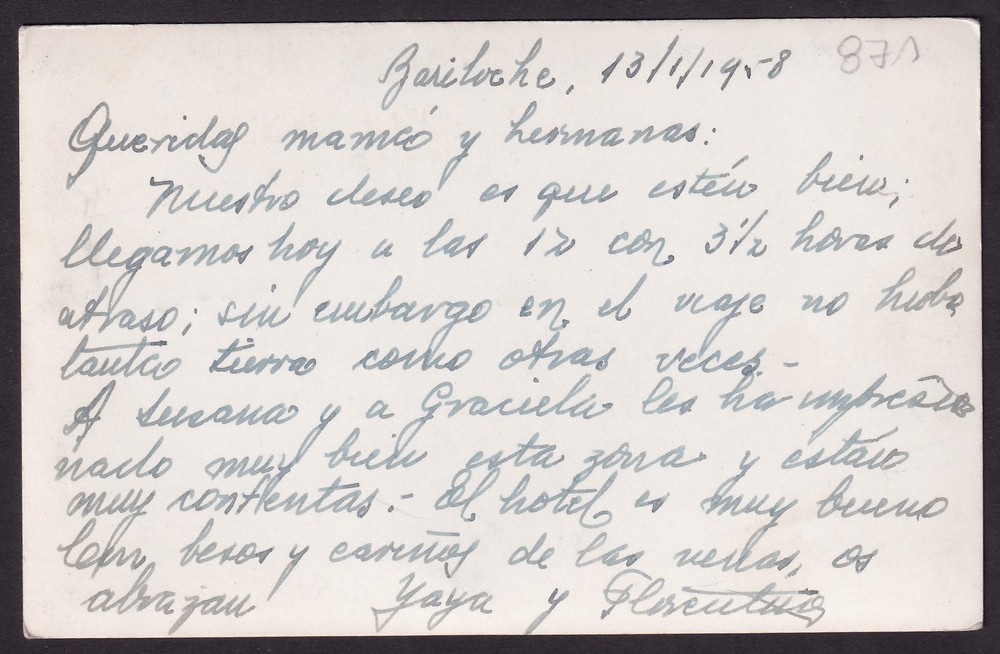 Bariloche, 13/1/1958
871
Queridas mamá y hermanas:
Nuestro deseo es que estén bien;
llegamos hoy a las 12 con 3 1/2 horas de
atraso; sin embargo en el viaje no hubo
tanta tierra como otras veces.-
A Susana y a Graciela les ha impresio
nado muy bien esta zona y están
muy contentas.- El hotel es muy bueno
Con besos y cariños de las nenas, os
abrazan Yaya y Florentino